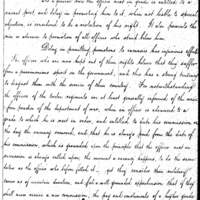 As a general rule when an officer is entitled to a
vacant post, and pending promotion due to it, when not liable to special
objection, is considered to be a violation of his right. For him precedes the
rise in advance to promotion of all officers who stand below him.
Delay in granting promotions to vacancies has injurious effects
For officers who are now kept out of their rights believe that they suffer
from a parsimonious spirit in the government, and this has a strong tendency
to disgust them with the service of their country. For notwithstanding
the officers of the entire regiments are at least generally informed of the uni-
form practice of the department of war, when an officer is advanced to a
grade to which he is next in order, and entitled, to date his commission on
the day the vacancy occurred, and that he is always paid from the date of
his commission, which is grounded upon the principle that the officer next in
succession is always called upon, the moment a vacancy happens, to do the same
duties as the officer who before filled it, yet they consider their military
career as of uncertain duration, and feel a well grounded apprehension that if they
the pay and emoluments of a higher grade